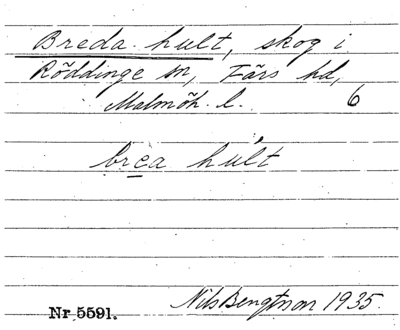 Breda hult, skog i
Röddinge sn, Färs hd,
Malmöh. l. 6
brea hult
Nils Bengtson 1935.
Nr 5591.